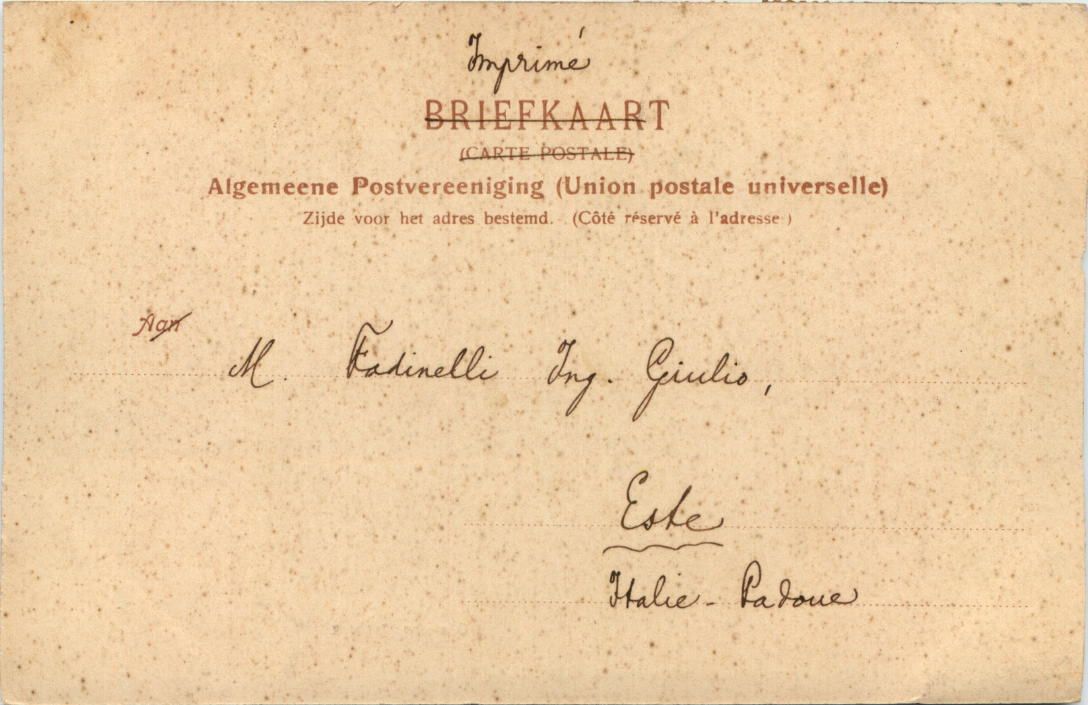 Imprimé
BRIEFKAART
(CARTE POSTALE)
Algemeene Postvereeniging (Union postale universelle)
Zijde voor het adres bestemd. (Côté réservé à l'adresse)
Aan
M. Fadinelli Ing. Giulio,
Este
Italie - Padoue